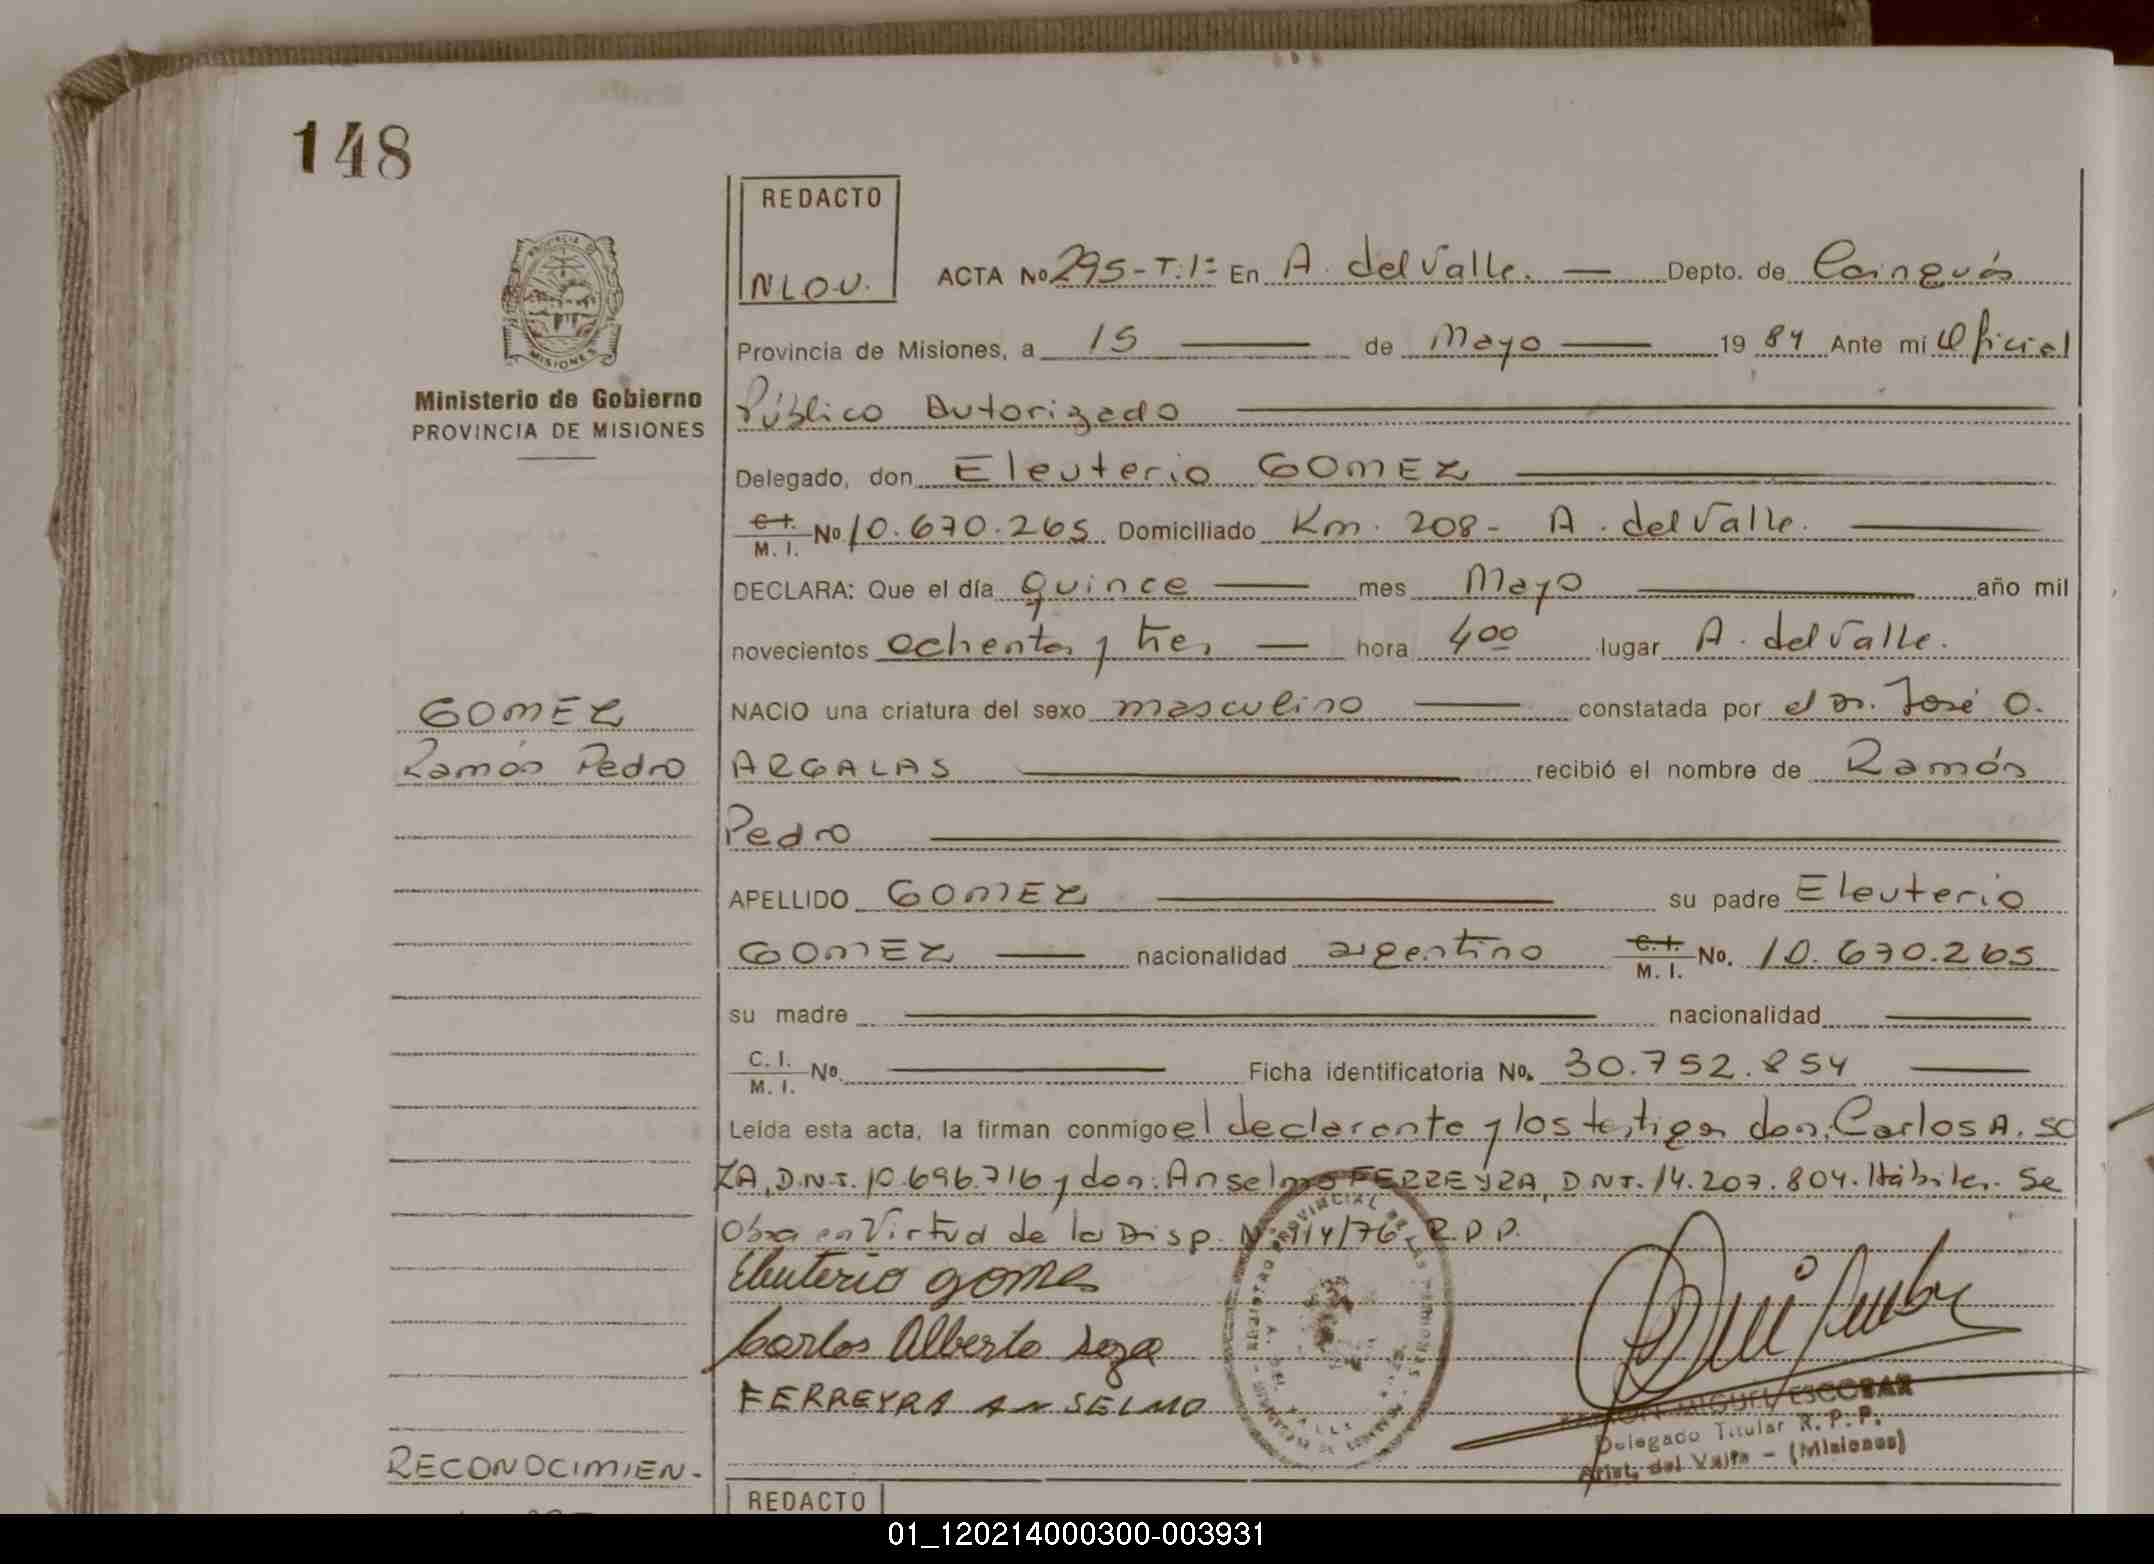 148
REDACTO
NLOU.
ACTA No 295-T.1= En A. del Valle. Depto. de Cainguás
Provincia de Misiones, a 15 de Mayo 1984 Ante mí Oficial
Público Autorizado
Delegado, don Eleuterio GOMEZ
C.I. M.I. No 10.670.265 Domiciliado Km. 208- A. del Valle.
DECLARA: Que el día quince mes Mayo año mil
novecientos ochenta y tres hora 4 00 lugar A. del Valle.
NACIO una criatura del sexo masculino constatada por el Dr. José O.
ARGALAS recibió el nombre de Ramón
Pedro
APELLIDO GOMEZ su padre Eleuterio
GOMEZ nacionalidad argentino C.I. M.I. No. 10.670.265
su madre nacionalidad
C.I. M.I. No. Ficha identificatoria No. 30.752.854
Leída esta acta, la firman conmigo el declarante y los testigos don. Carlos A. SO
ZA, D.N.I. 10.696.716 y don. Anselmo FERREYRA, DNI. 14.207.804. Hábiles. Se
Obra en Virtud de la Disp. Nº 114/76 R.P.P.
Eleuterio gomes
Carlos Alberto Soza
FERREYRA ANSELMO
RAMON MIGUEL ESCOBAR
Delegado Titular R.P.P.
Arist. del Valle - (Misiones)
REGISTRO PROVINCIAL DE LAS PERSONAS
MISIONES
Ministerio de Gobierno
PROVINCIA DE MISIONES
GOMEZ
Ramón Pedro
RECONOCIMIEN-
REDACTO
01_120214000300-003931